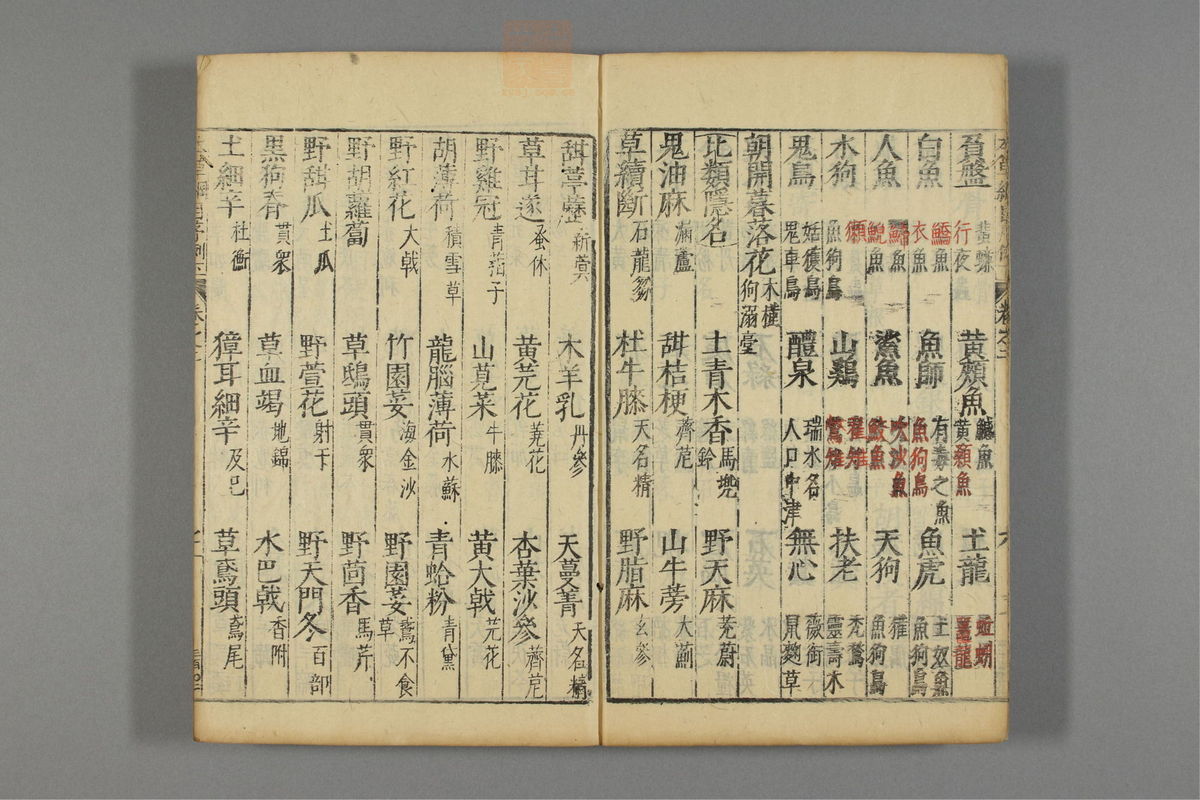 負盤 蜚蠊 行夜 黃顙魚 黃顙魚 土龍 蚯蚓 鼉龍
白魚 鱎魚 衣魚 魚師 有毒之魚 魚狗鳥 魚虎 土奴魚 魚狗鳥
人魚 魚 鯢魚 鯊魚 吹沙魚 鮫魚 天狗 獾 魚狗鳥
木狗 魚狗鳥 山鷄 翟雉 鷩雉 扶老 禿鶖 靈壽木
鬼鳥 姑獲鳥 鬼車鳥 醴泉 瑞水名 人口中津 無心 薇銜 鼠麴草
朝開暮落花 木槿 狗溺臺
比類隱名 土青木香 馬兜鈴 野天麻 茺蔚
鬼油麻 漏蘆 甜桔梗 薺苨 山牛蒡 大薊
草續斷 石龍芻 杜牛膝 天名精 野脂麻 玄參
甜葶藶 菥蓂 木羊乳 丹參 天蔓菁 天名精
草甘遂 蚤休 黃芫花 蕘花 杏葉沙參 薺苨
野雞冠 青葙子 山莧菜 牛膝 黃大戟 芫花
胡薄荷 積雪草 龍腦薄荷 水蘇 青蛤粉 青黛
野紅花 大戟 竹園荽 海金沙 野園荽 鵞不食草
野胡蘿蔔 草鴟頭 貫衆 野茴香 馬芹
野甜瓜 土瓜 野萱花 射干 野天門冬 百部
黑狗脊 貫衆 草血竭 地錦 水巴戟 香附
土細辛 杜衡 獐耳細辛 及巳 草鳶頭 鳶尾